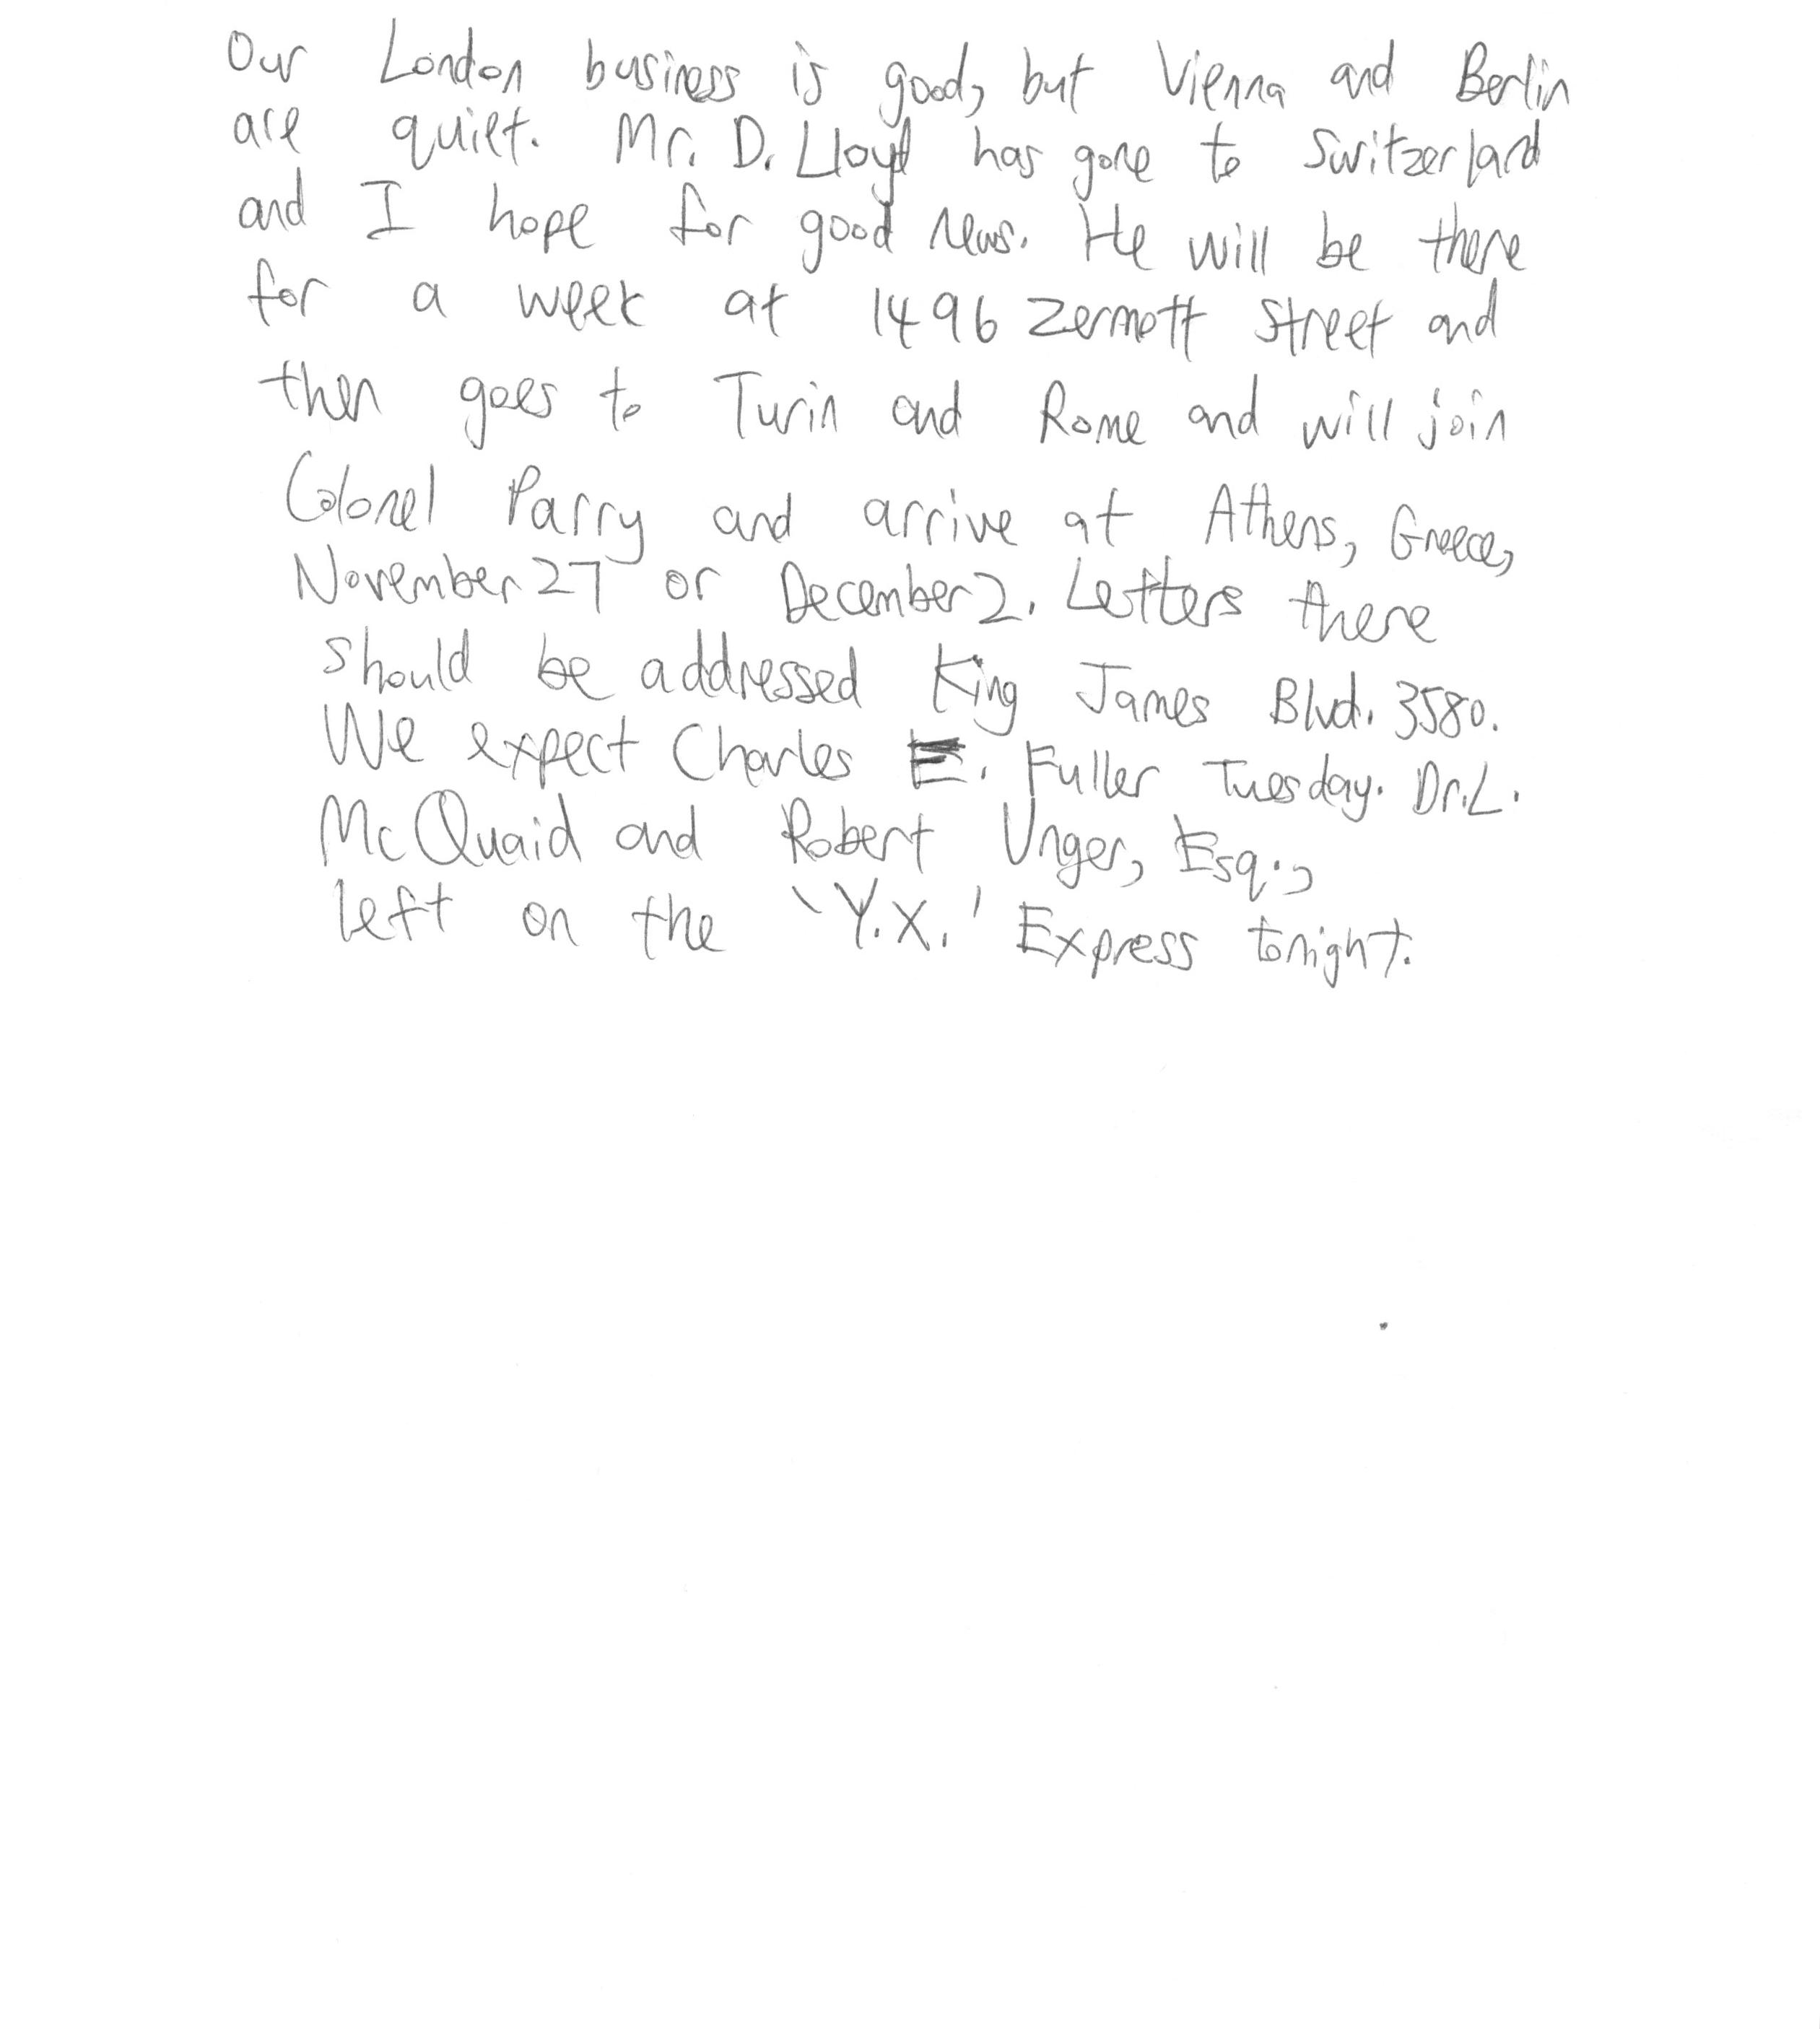 Our London business is good, but Vienna and Berlin
are quiet. Mr. D. Lloyd has gone to Switzerland
and I hope for good news. He will be there
for a week at 1496 Zermott Street and
then goes to Turin and Rome and will join
Colonel Parry and arrive at Athens, Greece,
November 27 or December 2. Letters there
should be addressed King James Blvd. 3580.
We expect Charles E. Fuller Tuesday. Dr. L.
McQuaid and Robert Unger, Esq.,
left on the 'Y.X.' Express tonight.